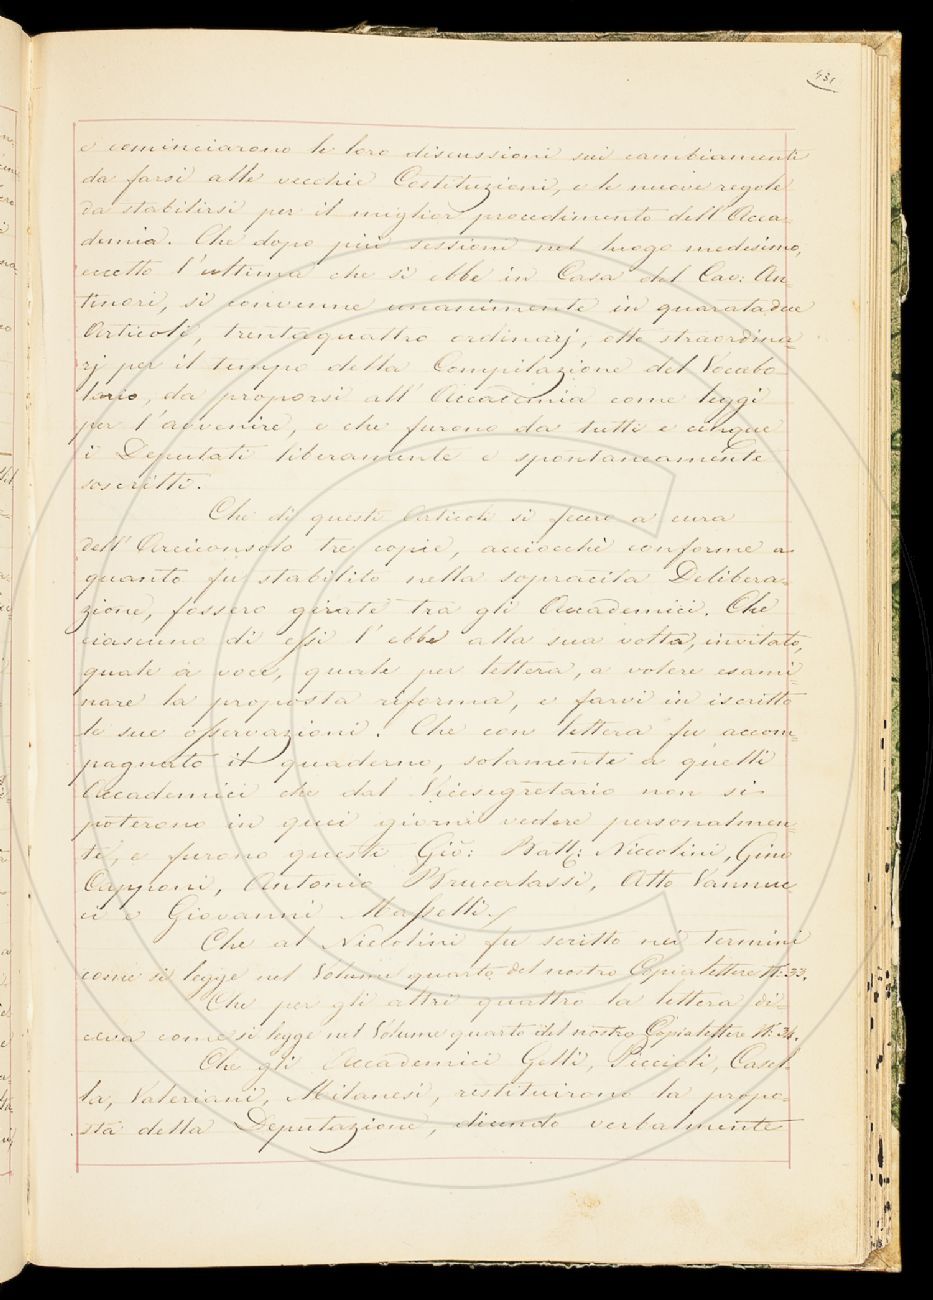 431
e cominciarono le loro discussioni sui cambiamenti
da farsi alle vecchie Costituzioni, e le nuove regole
da stabilirsi per il miglior procedimento dell'Acca-
demia. Che dopo più sessioni nel luogo medesimo,
eccetto l'ultima che si ebbe in Casa del Cav: An-
tinori, si convenne unanimente in quaratadue
Articoli, trentaquattro ordinarj, otto straordina-
rj per il tempo della Compilazione del Vocabo
lario, da proporsi all'Accademia come leggi
per l'avvenire, e che furono da tutti e cinque
i Deputati liberamente e spontaneamente
soscritti.
Che di questi Articoli si fecero a cura
dell'Arciconsolo tre copie, acciocchè conforme a
quanto fu stabilito nella sopracita Delibera-
zione, fossero girate tra gli Accademici. Che
ciascuno di essi l'ebbe alla sua volta, invitato,
quale a voce, quale per lettera, a volere esami-
nare la proposta riforma, e farvi in iscritto
le sue osservazioni. Che con lettera fu accom-
pagnato il quaderno, solamente a quelli
Accademici che dal Vicesegretario non si
poterono in quei giorni vedere personalmen-
te, e furono questi Gio: Batt: Niccolini, Gino
Capponi, Antonio Brucalassi, Atto Vannuc-
ci e Giovanni Masselli.
Che al Niccolini fu scritto nei termini
come si legge nel Volume quarto del nostro Copialettere N: 33.
Che per gli altri quattro la lettera di-
ceva come si legge nel Volume quarto del nostro Copialettere N: 34.
Che gli Accademici Gelli, Piccioli, Casel-
la, Valeriani, Milanesi, restituirono la propo-
sta della Deputazione, dicendo verbalmente